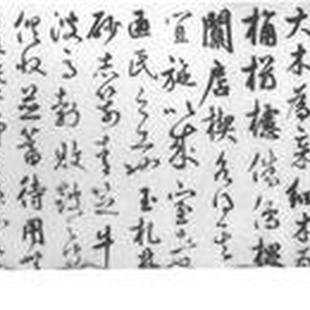 大木為杗細木為
桷欂櫨侏儒椳
闑扂楔各得其
宜施以成室者
匠氏之工也玉札丹
砂赤箭青芝牛
溲馬勃敗鼓之皮
俱收並蓄待用無